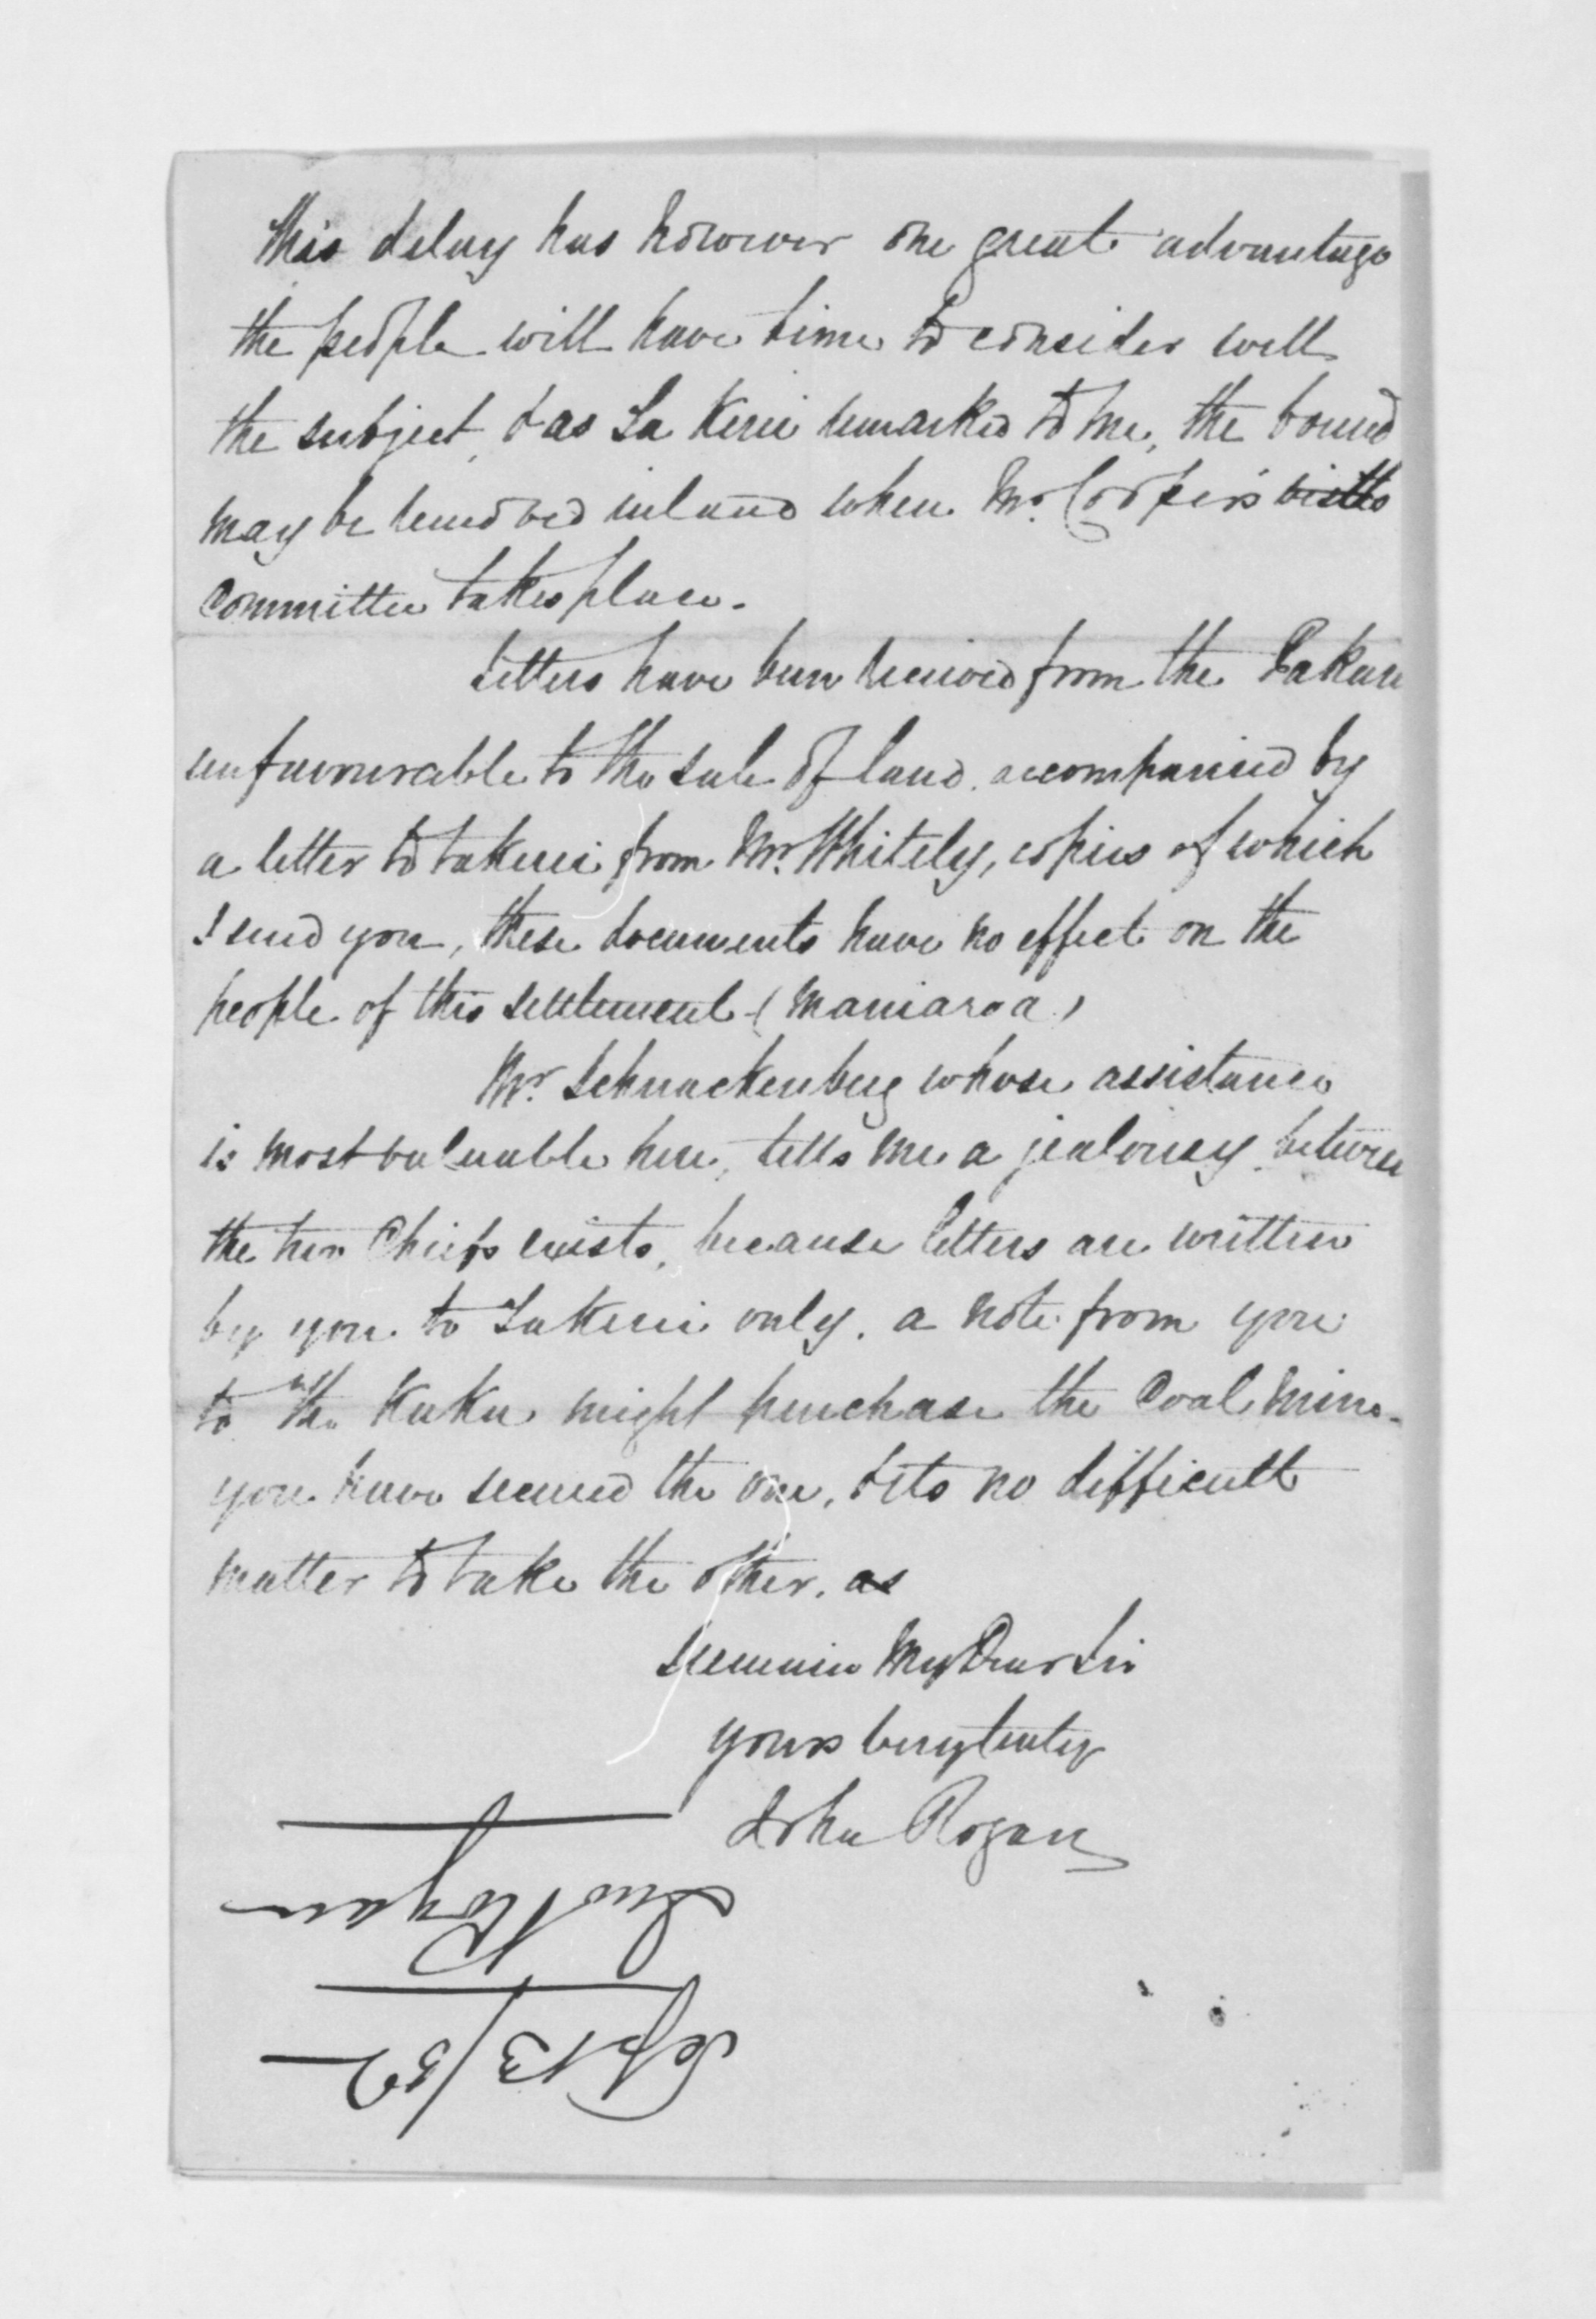 this delay has however one great advantage
the people will have time to consider well
the subject, & as Ta Kerei remarked to me, the bound
may be removed inland when Mr. Cooper's
Committee takes place.
Letters have been received from the
unfavourable to the sale of land, accompanied by
a letter to Takerei from Mr. Whitely, copies of which
I send you, these documents have no effect on the
people of this settlement (Maniaroa)
Mr. Schnackenberg whose assistance
is most valuable here, tells me a jealousy between
the two Chiefs exists, because letters are written
by you to Takerei only. a note from you
to Te Kaka might purchase the Coal Mine.
you have secured the one, & its no difficult
matter to take the other. as
remain My Dear Sir
yours very truly
John Rogan
Jno Rogan
Sept 13/52